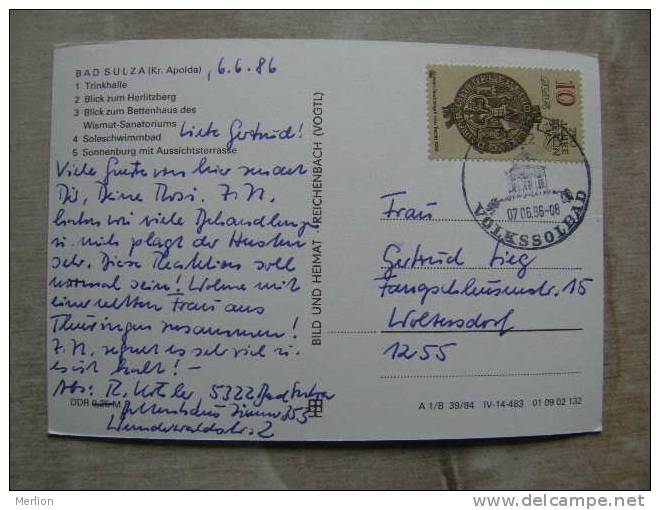 BAD SULZA (Kr. Apolda) , 6.6.86
1 Trinkhalle
2 Blick zum Herlitzberg
3 Blick zum Bettenhaus des
Wismut-Sanatoriums
4 Soleschwimmbad
5 Sonnenburg mit Aussichtsterrasse
Liebe Gertrud!
Viele Grüße von hier sendet
Dir, Deine Rosi. Z. Zt.
haben wir viele Behandlungen
u. mich plagt der Husten
sehr. Diese Reaktion soll
normal sein! Wohne mit
einer netten Frau aus
Thüringen zusammen!
Z. Zt. regnet es sehr viel u.
es ist kalt! –
Abs: R. 5322 Bad Sulza
Bettenhaus Zimmer 353
Wunderwaldstr. 2
DDR 0,25 M
BILD UND HEIMAT REICHENBACH (VOGTL)
10
DDR
07.06.86-08
VOLKSSOLBAD
Frau
Gertrud Sieg
Fangschleusenstr. 15
Woltersdorf
1255
A 1/B 39/84 IV-14-483 01 09 02 132
Merlion
www.delcampe.net